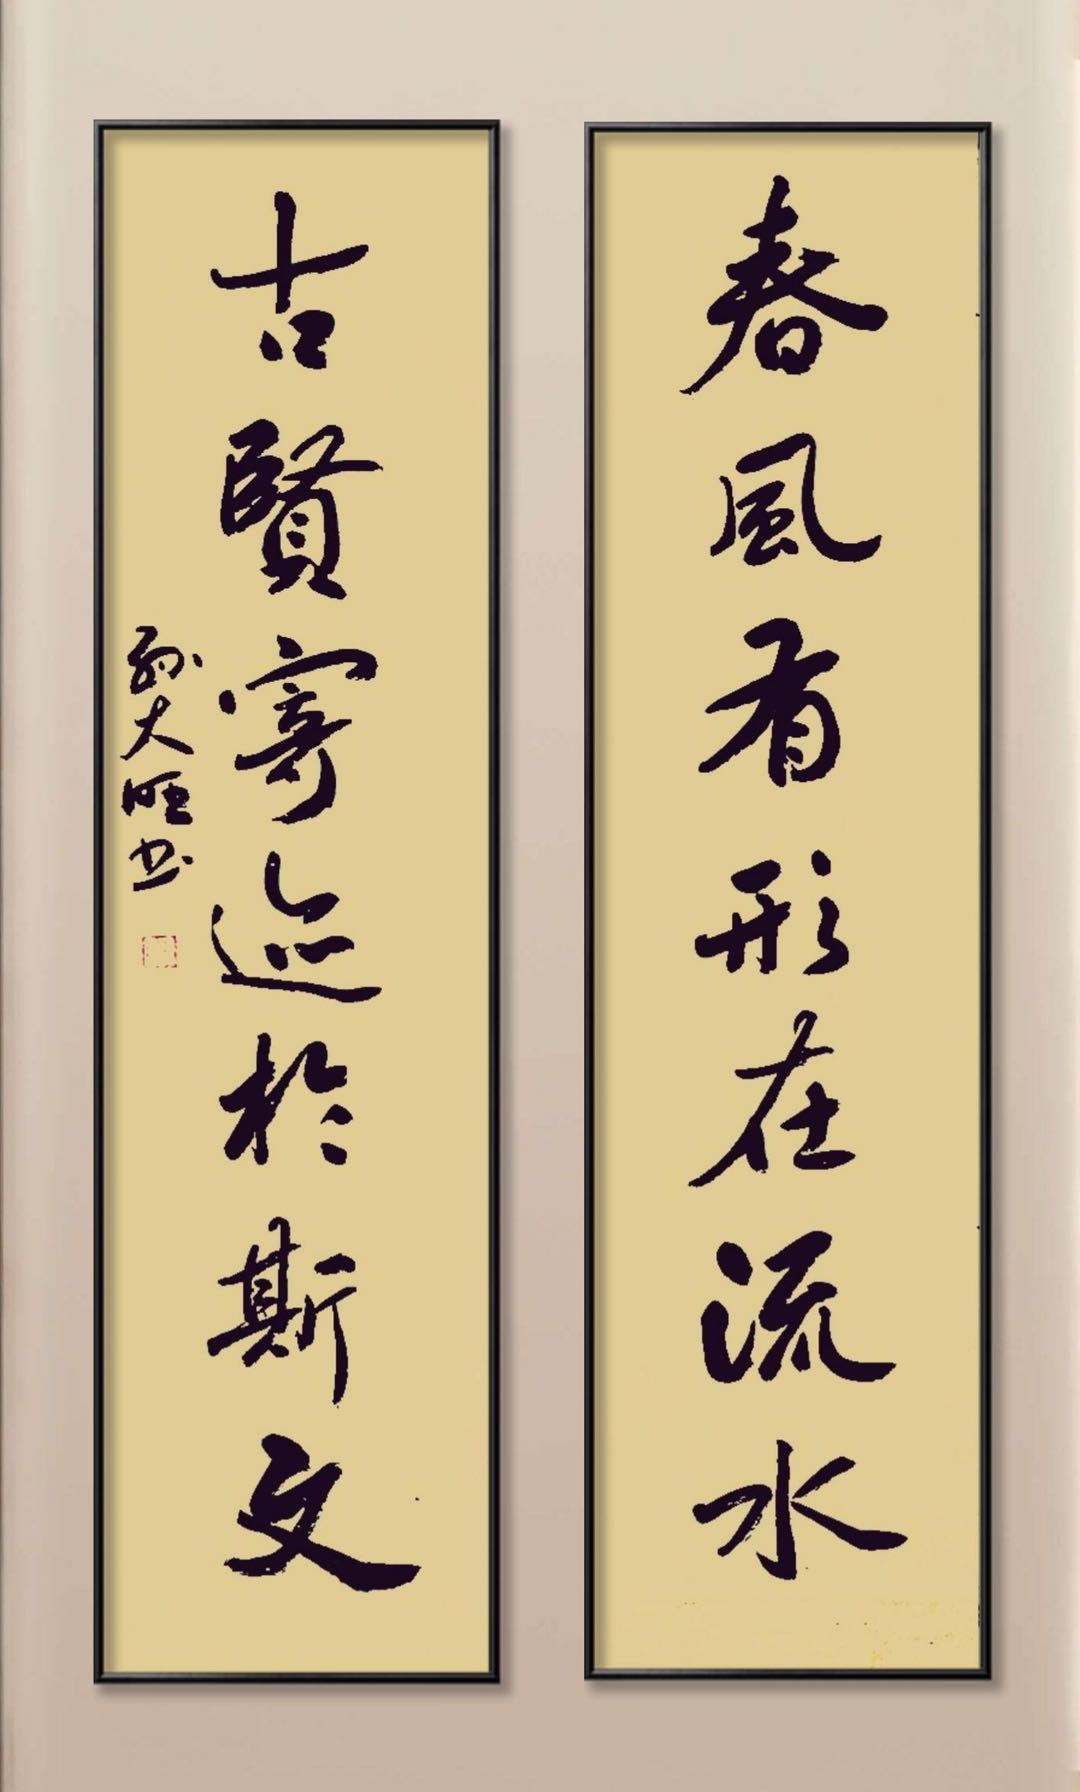 春風有形在流水
古賢寄迹於斯文
孙大旺书